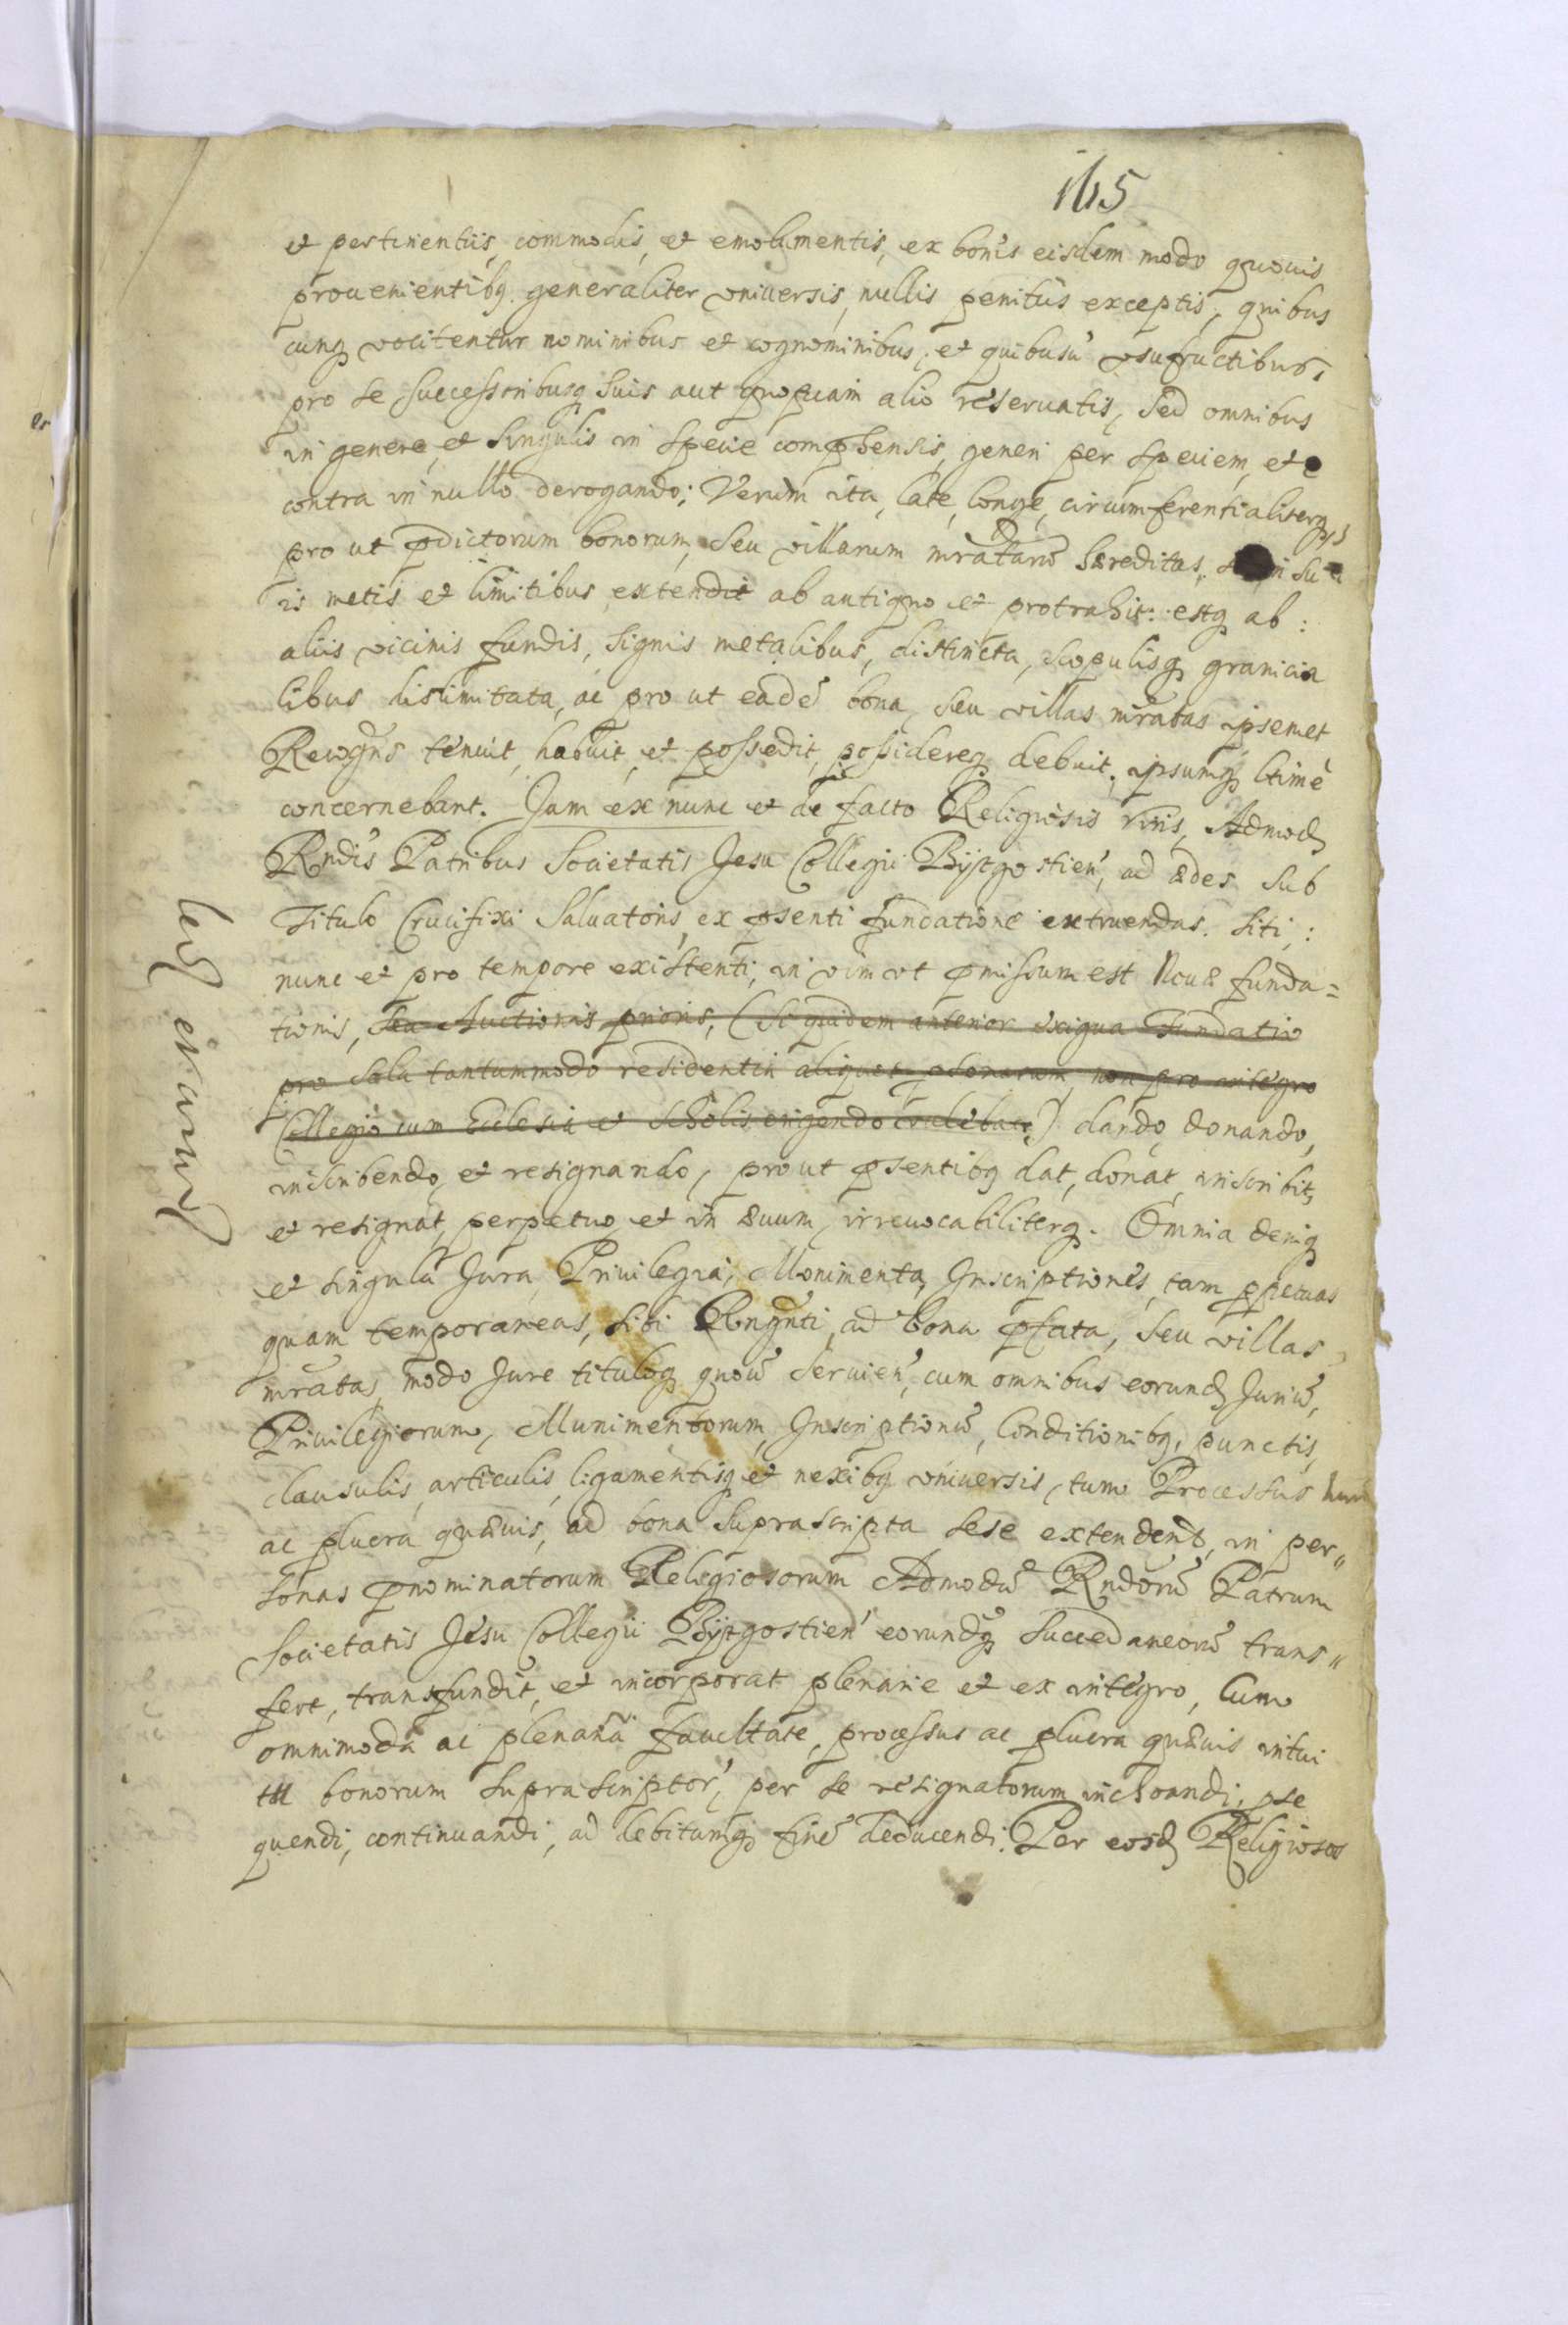 165
et pertinentiis, commodis, et emolumentis, ex bonis eisdem modo quouis
prouenientibq generaliter vniuersis, nullis penitus exceptis, quibus
cunq vocitentur nominibus et cognominibus, et quibusu vsufructibus,
pro se successoribusq suis aut quopiam alio reseruatis, sed omnibus
in genere, et singulis in specie comphensis, generi per speciem, et e
contra in nullo derogando; Verum ita, late, longe, circumferentialiterq,
pro ut pdictorum bonorum, seu villarum mratarũ hæreditas, in su
is metis et limitibus extendit ab antiquo et protrahit: estq ab:
aliis vicinis fundis, signis metalibus, distincta, scopulisq granicia
libus dislimitata, ac pro ut eadẽ bona, seu villas mratas ipsemet
Recogns tenuit, habuit, et possedit, possidereq debuit, ipsumq ltimè
concernebant. Jam ex nunc et de facto Religiosis viris, Admod
Rndis Patribus Societatis Jesu Collegii Bijdgostien, ad ædes sub
Titulo Crucifixi Saluatoris, ex psenti fundatione extruendas. siti,:
nunc et pro tempore existenti, in vim vt pmissum est Nouæ funda=
tionis, seu Auctionis prioris, (Siquidem anterior exigua Fundatio
pro sola tantummodo residentia aliquot psonarum, non pro integro
Collegio cum Ecclesia et Scholis erigendo) dando, donando,
inscribendo, et resignando, prout psentibq dat, donat, inscribit,
et resignat, perpetuo et in æuum, irreuocabiliterq. Omnia deniq
et singula Jura, Priuilegia, Monimenta, Inscriptiones, tam ppetuas
quam temporaneas, sibi Rngnti, ad bona pfata, seu villas
mratas, modo Jure tituloq quouis seruien, cum omnibus eorund Juriũ,
Priuilegiorum, Munimentorum, Inscriptionũ, Conditionibq, punctis,
clausulis, articulis, ligamentisq et nexibq vniuersis, tum Processus
ac plucra quæuis, ad bona suprascripta sese extendent, in per"
sonas pnominatorum Religiosorum Admodũ Rndorũ Patrum
Societatis Jesu Collegii Bijdgostien eorundq succedaneorũ trans"
fert, transfundit, et incorporat plenarie et ex integro, Cum
omnimoda ac plenaria facultate, processus ac plucra quæuis intui
tu bonorum suprascriptor, per se resignatorum inchoandi, pse
quendi, continuandi, ad debitumq finẽ deducendi. Per eosd Religiosos